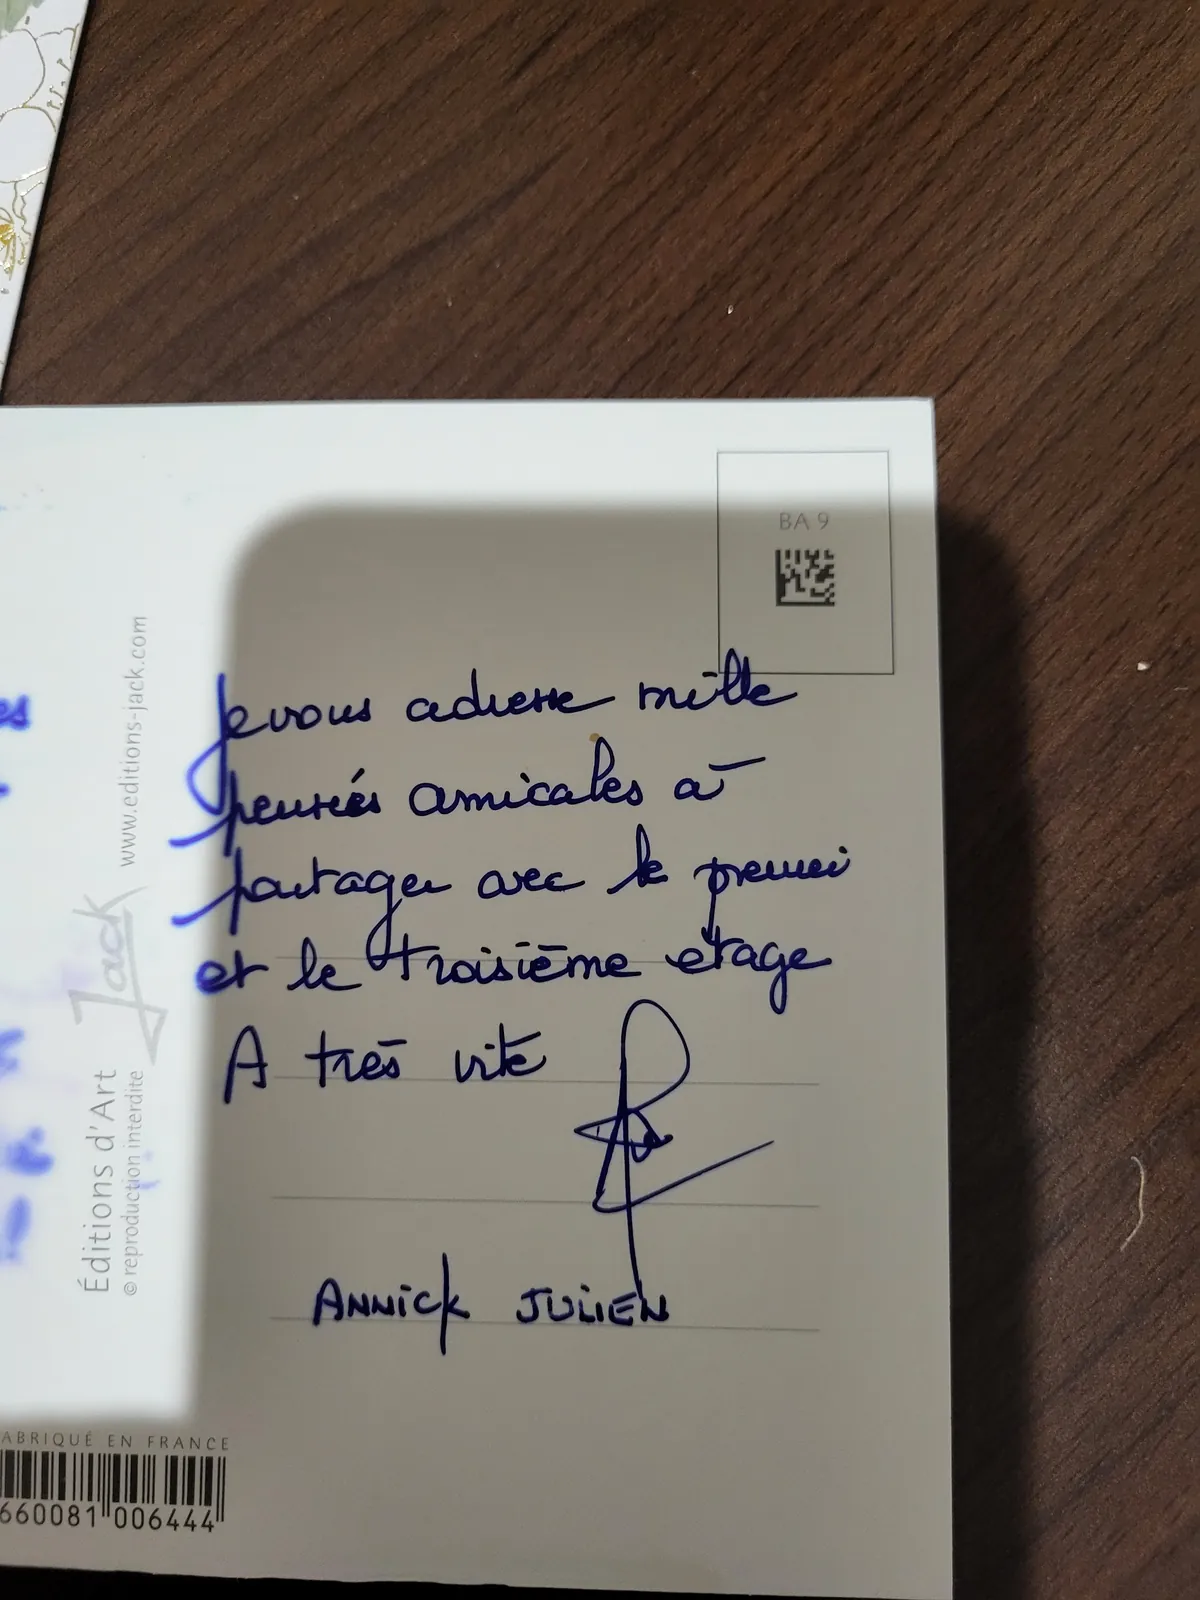 es
BA 9
Je vous adresse mille
pensées amicales à
partager avec le premier
et le troisième etage
A très vite
ANNICK JULIEN
Éditions d'Art Jack www.editions-jack.com
© reproduction interdite
ABRIQUÉ EN FRANCE
660081 006444